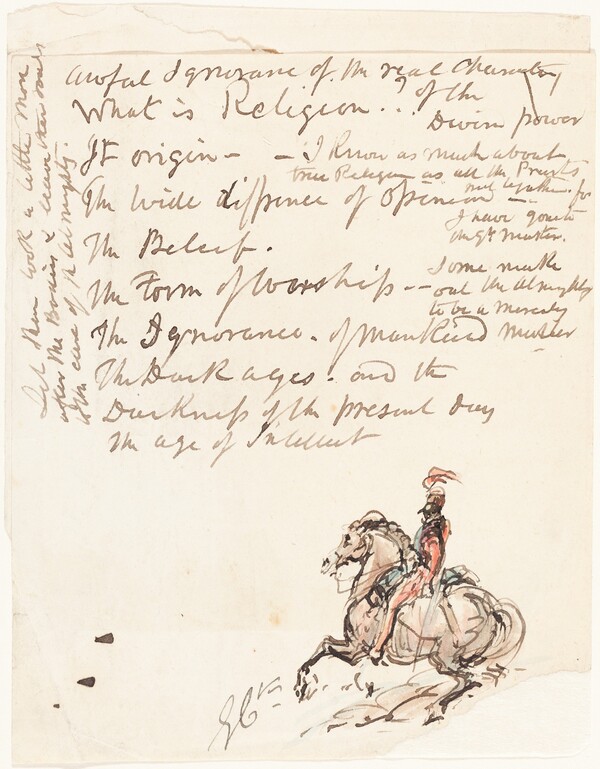 awful Ignorance of the real Character
What is Religion..? of the
Divin power
It origin — — I know as much about
true Religion as all the Priests
The wide diffrence of Opinion — put together. for
I have gone to
the Gt Master.
The Beleif.
The Form of Worship — Some make
out the Almighty
to be a
The Ignorance. of Mankind Master
The Dark ages. and the
Darkness of the present day
The age of Intellect
Let them look a little more
after the Brains & leave
to the care of the Almighty.